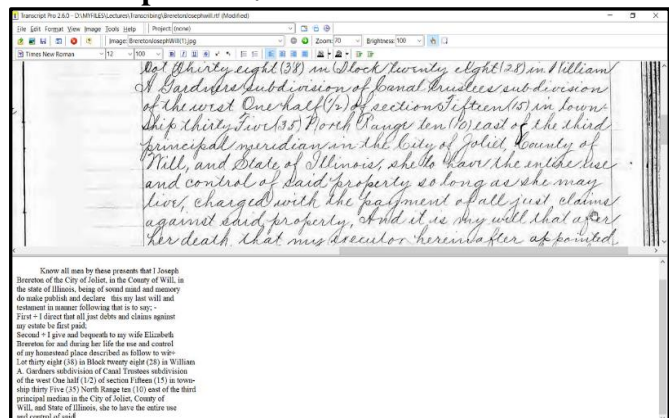 Transcript Pro 2.6.0 - D:\MYFILES\Lectures\Transcribing\Breretonjosephwill.rtf (Modified)
File Edit Format View Image Tools Help Project: (none)
Image: BreretonJosephWill(1).jpg Zoom: 70 Brightness: 100
Times New Roman 12 100
Lot Thirty eight (38) in Block twenty eight (28) in William
A Gardners Subdivision of Canal Trustees subdivision
of the west One half (1/2) of section Fifteen (15) in town-
ship thirty Five (35) North Range ten (10) east of the third
principal meridian in the City of Joliet, County of
Will, and State of Illinois, she to have the entire use
and control of said property so long as she may
live, charged with the payment of all just claims
against said property, And it is my will that after
her death that my executor hereinafter appointed
Know all men by these presents that I Joseph
Brereton of the City of Joliet, in the County of Will, in
the state of Illinois, being of sound mind and memory
do make publish and declare this my last will and
testament in manner following that is to say; -
First + I direct that all just debts and claims against
my estate be first paid;
Second + I give and bequeath to my wife Elizabeth
Brereton for and during her life the use and control
of my homestead place described as follow to wit=
Lot thirty eight (38) in Block twenty eight (28) in William
A. Gardners subdivision of Canal Trustees subdivision
of the west One half (1/2) of section Fifteen (15) in town-
ship thirty Five (35) North Range ten (10) east of the third
principal median in the City of Joliet, County of
Will, and State of Illinois, she to have the entire use
and control of said